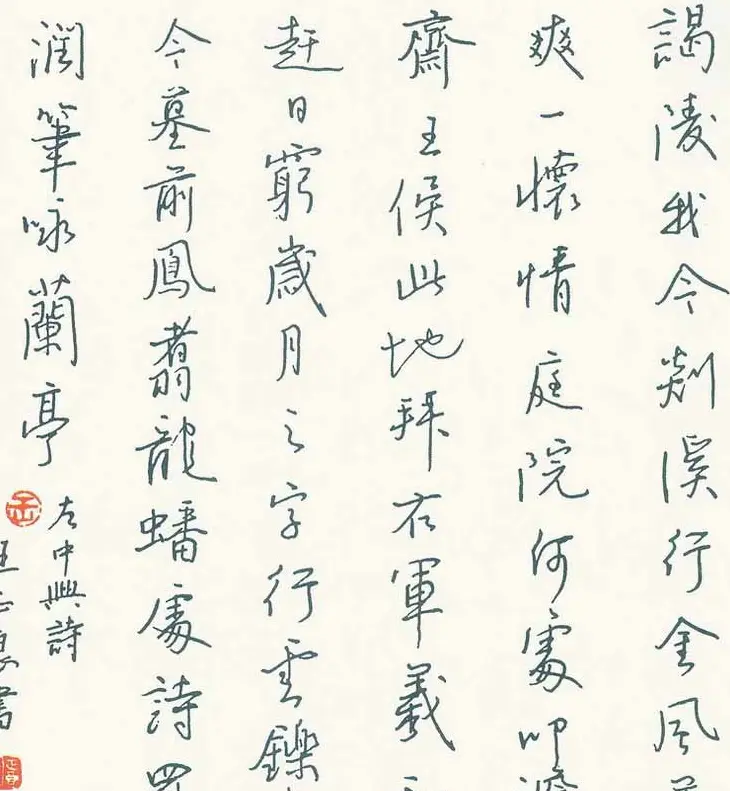 謁陵我今剡溪行金風
爽一懷情庭院何處叩
齋王侯此地拜右軍羲
趕日窮歲月之字行雲鑠
今墓前鳳翥龍蟠處詩
潤筆咏蘭亭
左中興詩